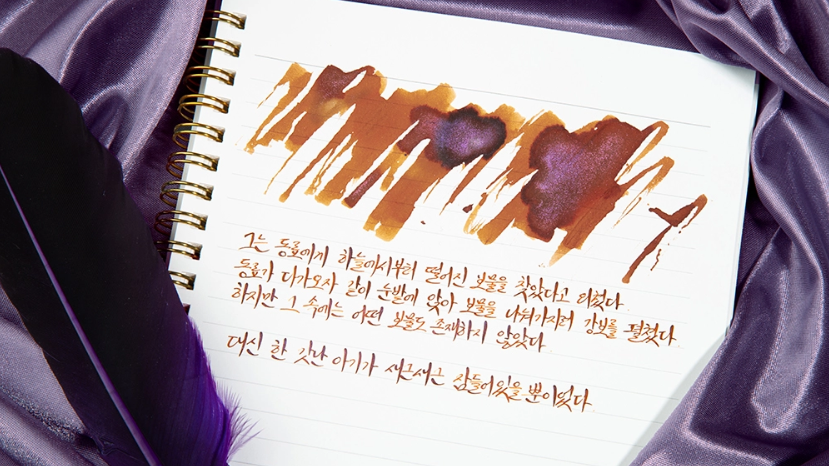 그는 동료에게 하늘에서부터 떨어진 보물을 찾았다고 외쳤다
동료가 다가오자 같이 눈밭에 앉아 보물을 나눠가지려 강보를 펼쳤다
하지만 그 속에는 어떤 보물도 존재하지 않았다
대신 한 갓난 아기가 새근새근 잠들어있을 뿐이었다